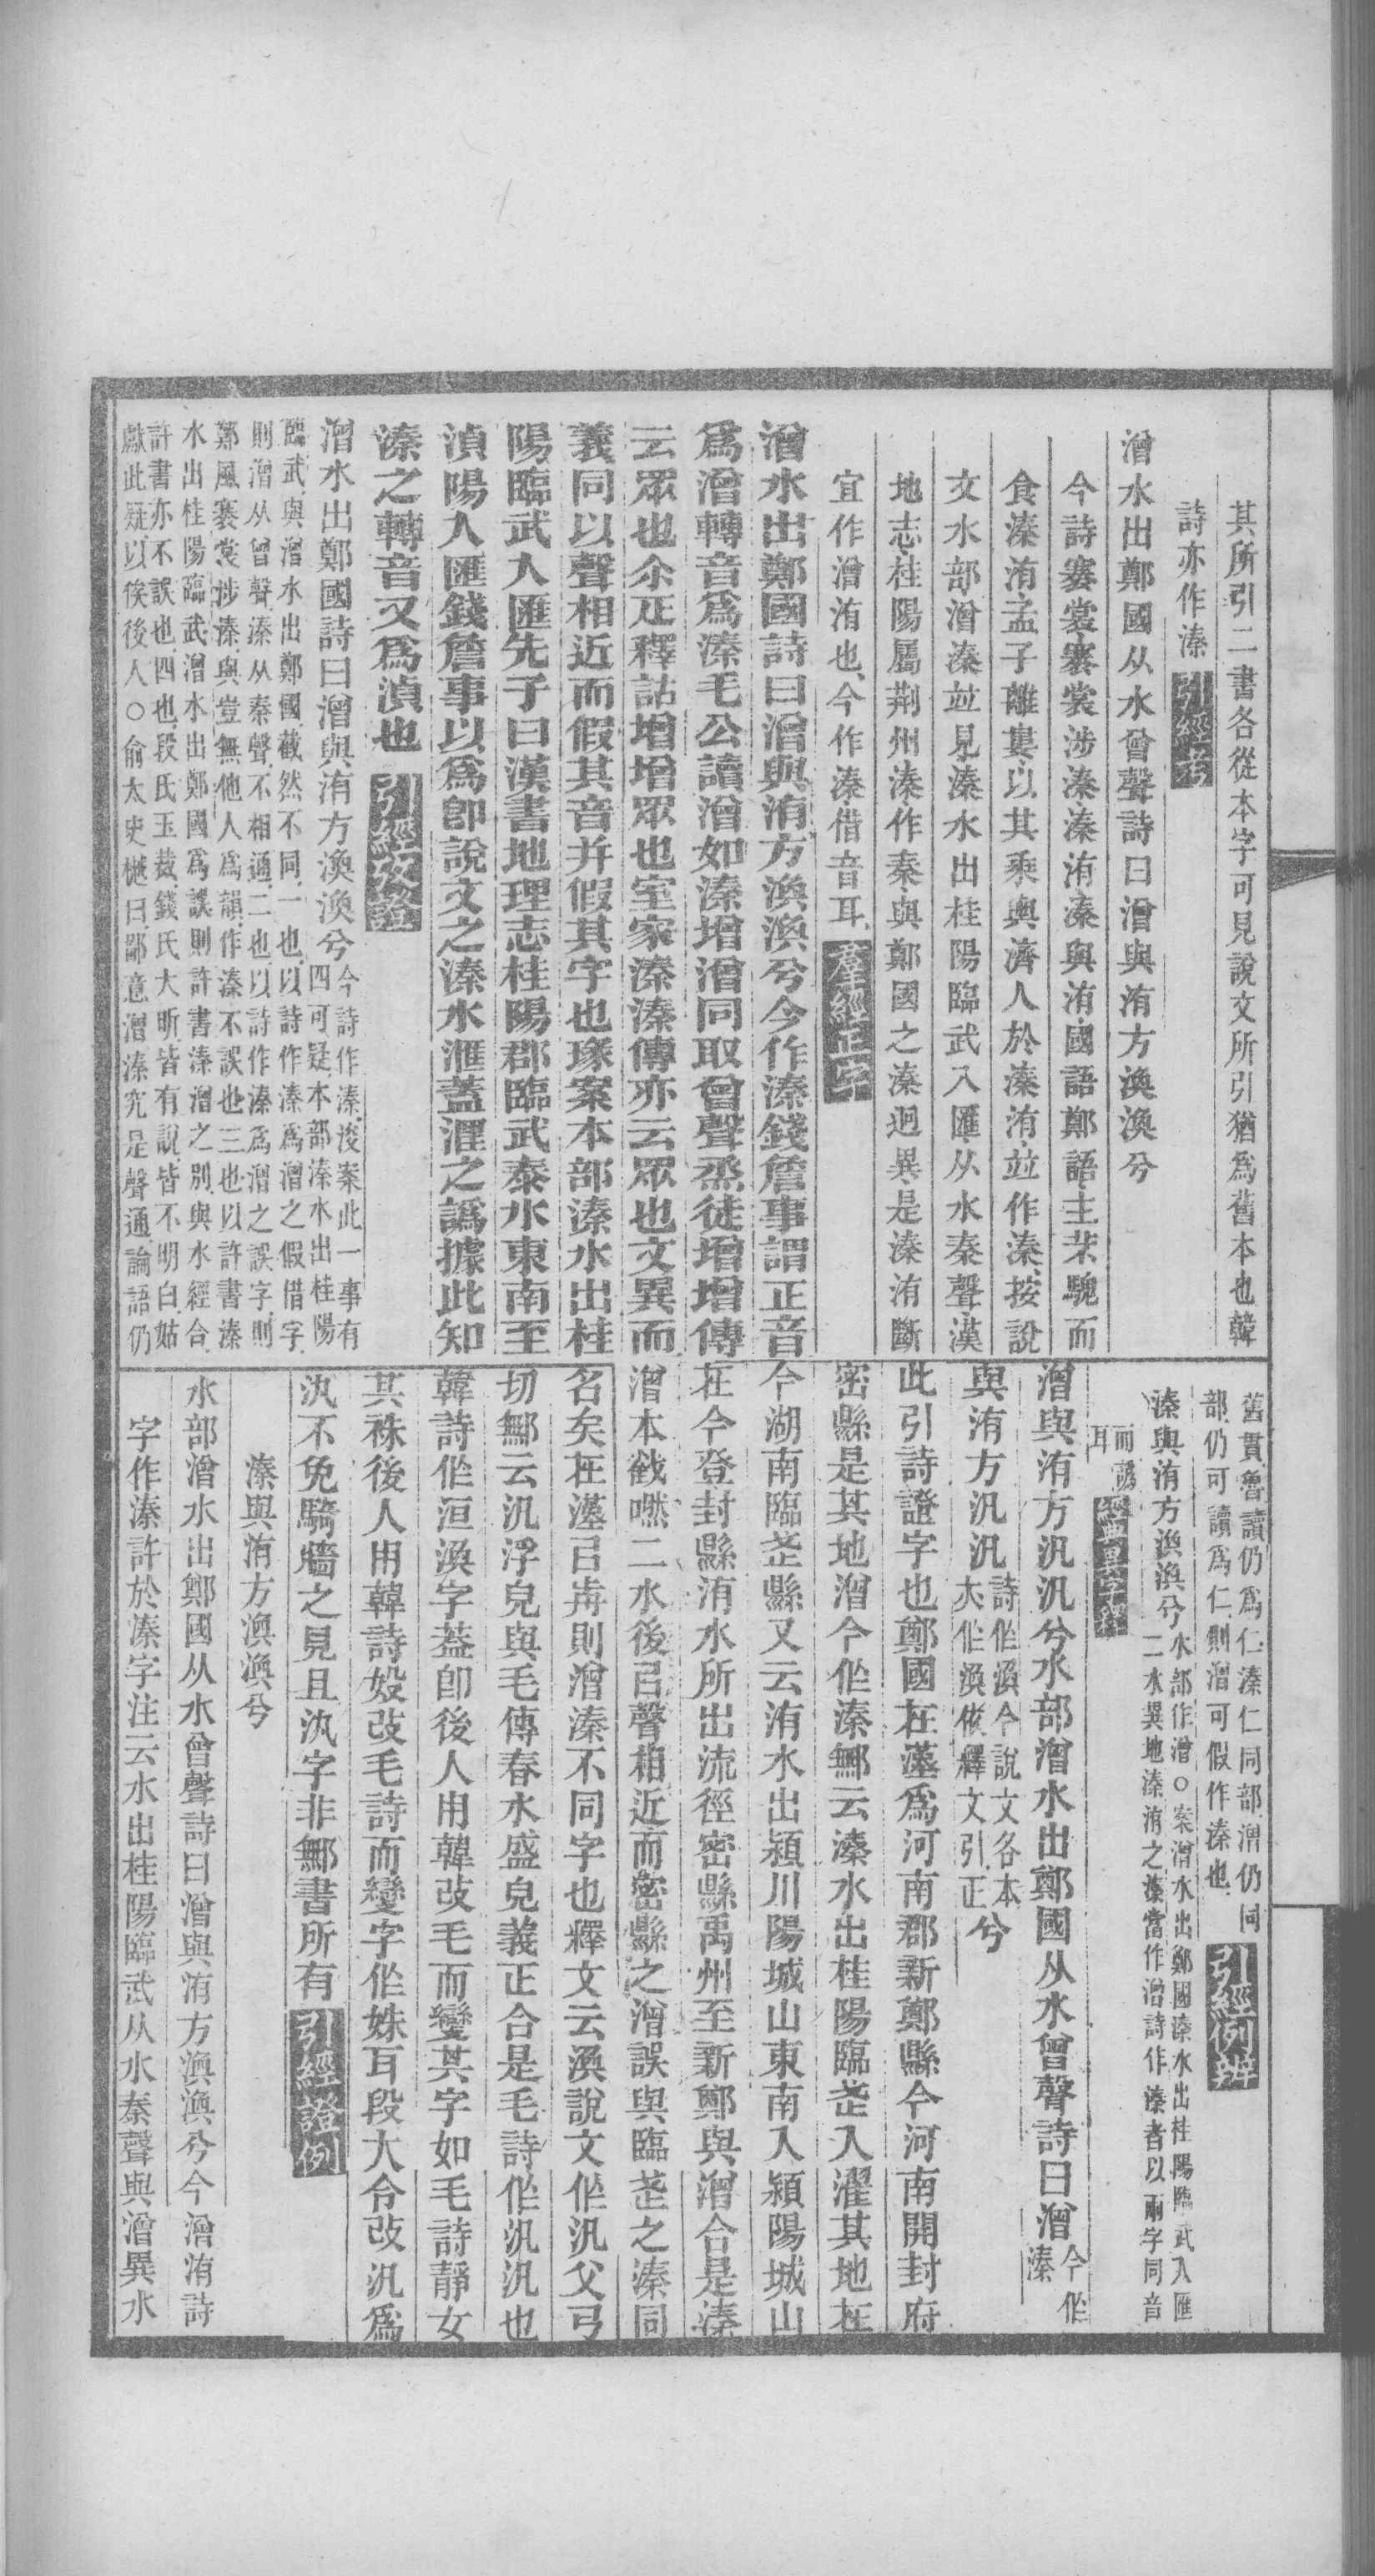 其所引二書各從本字可見說文所引猶爲舊本也韓
詩亦作溱 引經考
潧水出鄭國从水曾聲詩曰潧與洧方渙渙兮
今詩褰裳褰裳涉溱溱洧溱與洧國語鄭語主芣騩而
食溱洧孟子離婁以其乘輿濟人於溱洧並作溱按說
文水部潧溱並見溱水出桂陽臨武入匯从水秦聲漢
地志桂陽屬荆州溱作秦與鄭國之溱迥異是溱洧斷
宜作潧洧也今作溱借音耳 羣經正字
潧水出鄭國詩曰潧與洧方渙渙兮今作溱錢詹事謂正音
爲潧轉音爲溱毛公讀潧如溱增潧同取曾聲烝徒增增傳
云眾也尒疋釋詁增增眾也室家溱溱傳亦云眾也文異而
義同以聲相近而假其音并假其字也瑑案本部溱水出桂
陽臨武人匯先子曰漢書地理志桂陽郡臨武秦水東南至
湞陽人匯錢詹事以爲卽說文之溱水滙蓋湼之譌據此知
溱之轉音又爲湞也 引經攷證
潧水出鄭國詩曰潧與洧方渙渙兮 今詩作溱浚案此一事有
四可疑本部溱水出桂陽
臨武與潧水出鄭國截然不同一也以詩作溱爲潧之假借字
則潧从曾聲溱从秦聲不相通二也以詩作溱爲潧之誤字則
鄭風褰裳涉溱與豈無他人爲韻作溱不誤也三也以許書溱
水出桂陽臨武潧水出鄭國爲誤則許書溱潧之別與水經合
許書亦不誤也四也段氏玉裁錢氏大昕皆有說皆不明白姑
獻此疑以俟後人○俞太史樾曰鄙意潧溱究是聲通論語仍
舊貫魯讀仍爲仁溱仁同部潧仍同
部仍可讀爲仁則潧可假作溱也 引經例辨
溱與洧方渙渙兮 水部作潧○案潧水出鄭國溱水出桂陽臨武入匯
二水異地溱洧之溱當作潧詩作溱者以兩字同音
而譌
耳 經典異字釋
潧與洧方汎汎兮水部潧水出鄭國从水曾聲詩曰潧 今作
溱
與洧方汎汎 詩作渙今說文各本
大作渙依釋文引正 兮
此引詩證字也鄭國在漢爲河南郡新鄭縣今河南開封府
密縣是其地潧今作溱鄦云溱水出桂陽臨武入濯其地在
今湖南臨武縣又云洧水出潁川陽城山東南入潁陽城山
在今登封縣洧水所出流徑密縣禹州至新鄭與潧合是溱
潧本截嘫二水後㠯聲相近而密縣之潧誤與臨武之溱同
名矣在漢㠯歬則潧溱不同字也釋文云渙說文作汎父弓
切鄦云汎浮皃與毛傳春水盛皃義正合是毛詩作汎汎也
韓詩作洹渙字蓋卽後人用韓改毛而變其字如毛詩靜女
其袾後人用韓詩㚻改毛詩而變字作姝耳段大令改汎爲
汍不免騎牆之見且汍字非鄦書所有 引經證例
溱與洧方渙渙兮
水部潧水出鄭國从水曾聲詩曰潧與洧方渙渙兮今潧洧詩
字作溱許於溱字注云水出桂陽臨武从水秦聲與潧異水